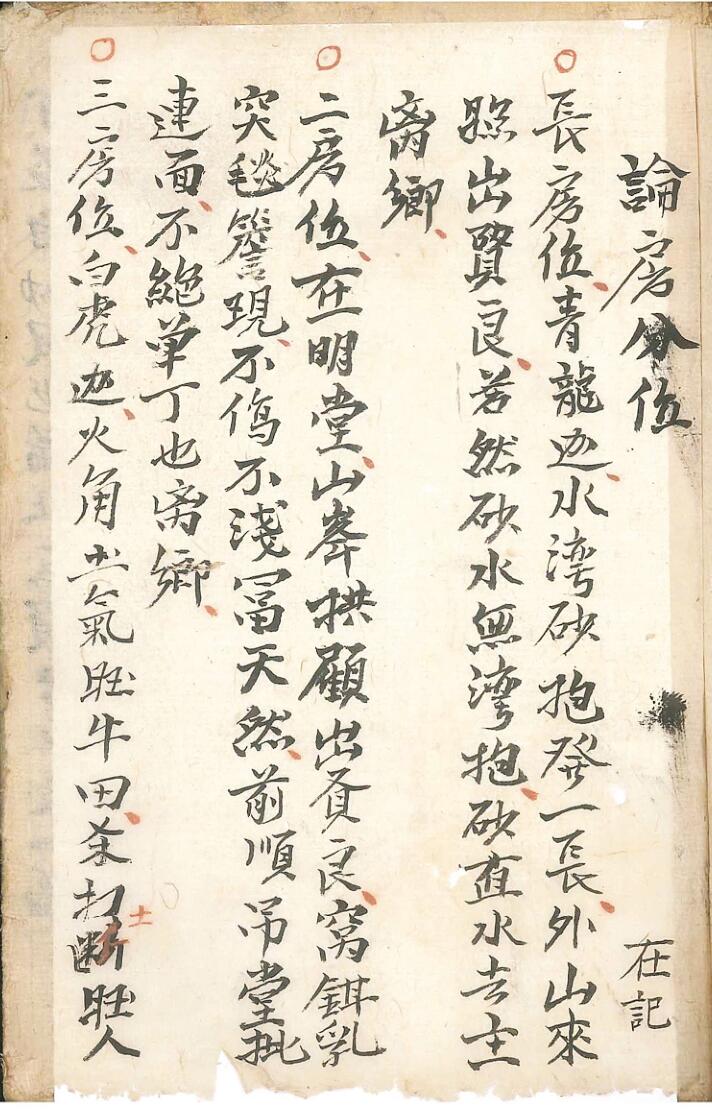 論房分位 在記
長房位、青龍边、水湾砂抱發一長、外山來
照出賢良、若然砂水無湾抱、砂直水去主
离鄉、
二房位、在明堂、山峯拱顧出賢良、窩鉗乳
突毯簷現、不傷不淺冨天然、前順吊堂批
連面、不絕单丁也离鄉、
三房位、白虎边、火角土氣旺牛田、来打断旺人
土